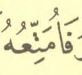 فَأُمَتِّعُهُ